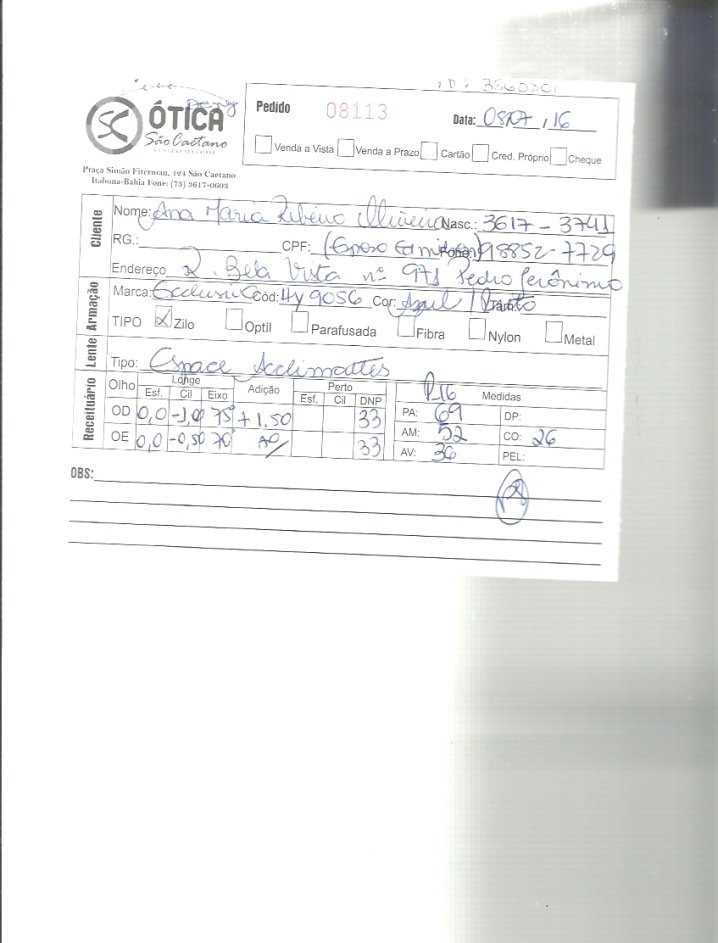 ÓTICA
São Caetano
Praça Simão Fiterman, 124 São Caetano
Itabuna-Bahia Fone: (73) 3617-0603
Pedido 08113 Data: 16
Venda a Vista Venda a Prazo Cartão Cred. Próprio Cheque
Cliente
Nome: Ana Maria Ribeiro Oliveira Nasc.: 3617-3741
RG.: CPF: (Esposo 98852-7729
Endereço R. Bela Vista nº 971 Pedro Jerônimo
Armação
Marca: Exclusive Cód: Hy 9056 Cor: Azul / Preto
TIPO X Zilo Optíl Parafusada Fibra Nylon Metal
Lente
Tipo: Espace Acclimattes
Receituário
Olho Longe Adição Perto Medidas
Esf. Cil Eixo Esf. Cil DNP
OD 0,0 -1,0 75° +1.50 33 PA: 69 DP:
OE 0,0 -0,50 70° 33 AM: 52 CO: 26
AV: 36 PEL:
OBS: